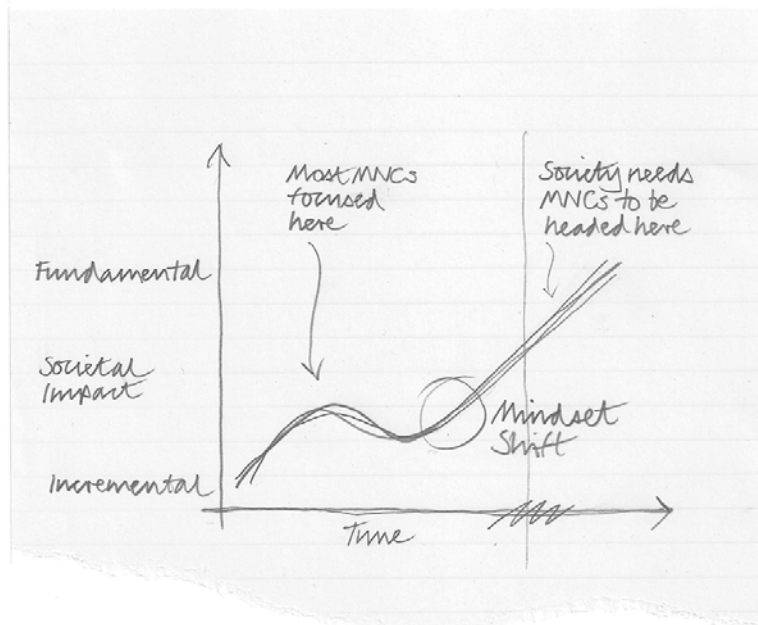 Most MNCs
focused
here
Society needs
MNCs to be
headed here
Fundamental
Societal
Impact
Mindset
Shift
Incremental
Time